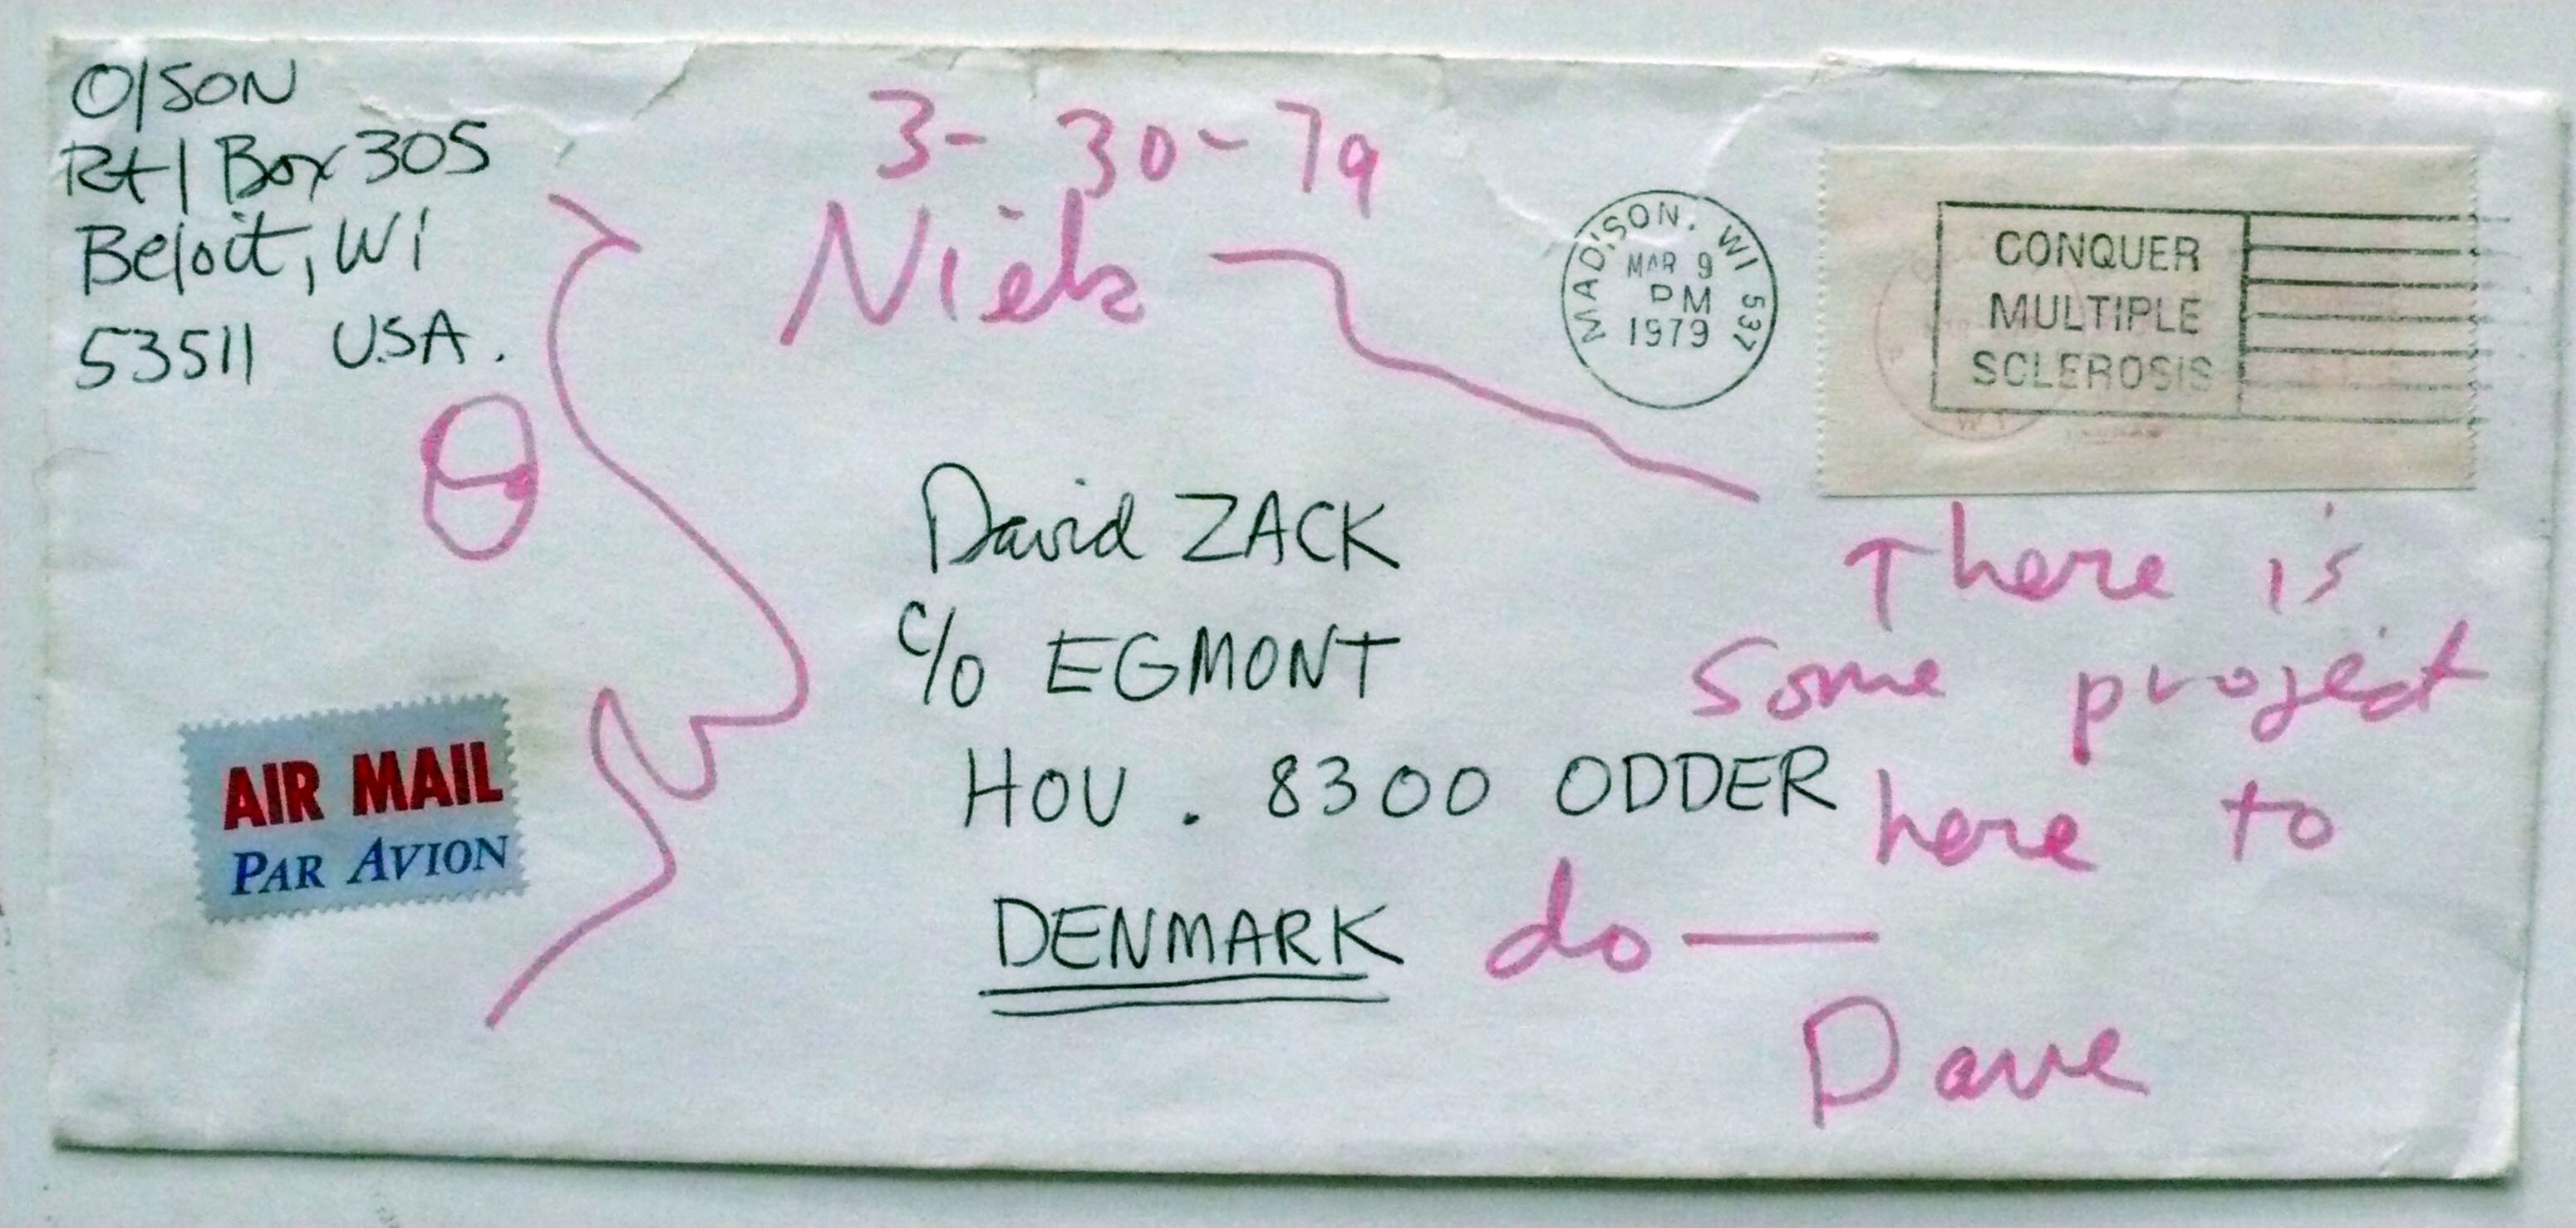 OlSON
Rt1 Box 305
Beloit, Wi
53511 USA.
3-30-79
Niels
MADISON, WI 537
MAR 9
PM
1979
CONQUER
MULTIPLE
SCLEROSIS
David ZACK
c/o EGMONT
HOU. 8300 ODDER
DENMARK
There is
Some project
here to
do —
Dave
AIR MAIL
PAR AVION